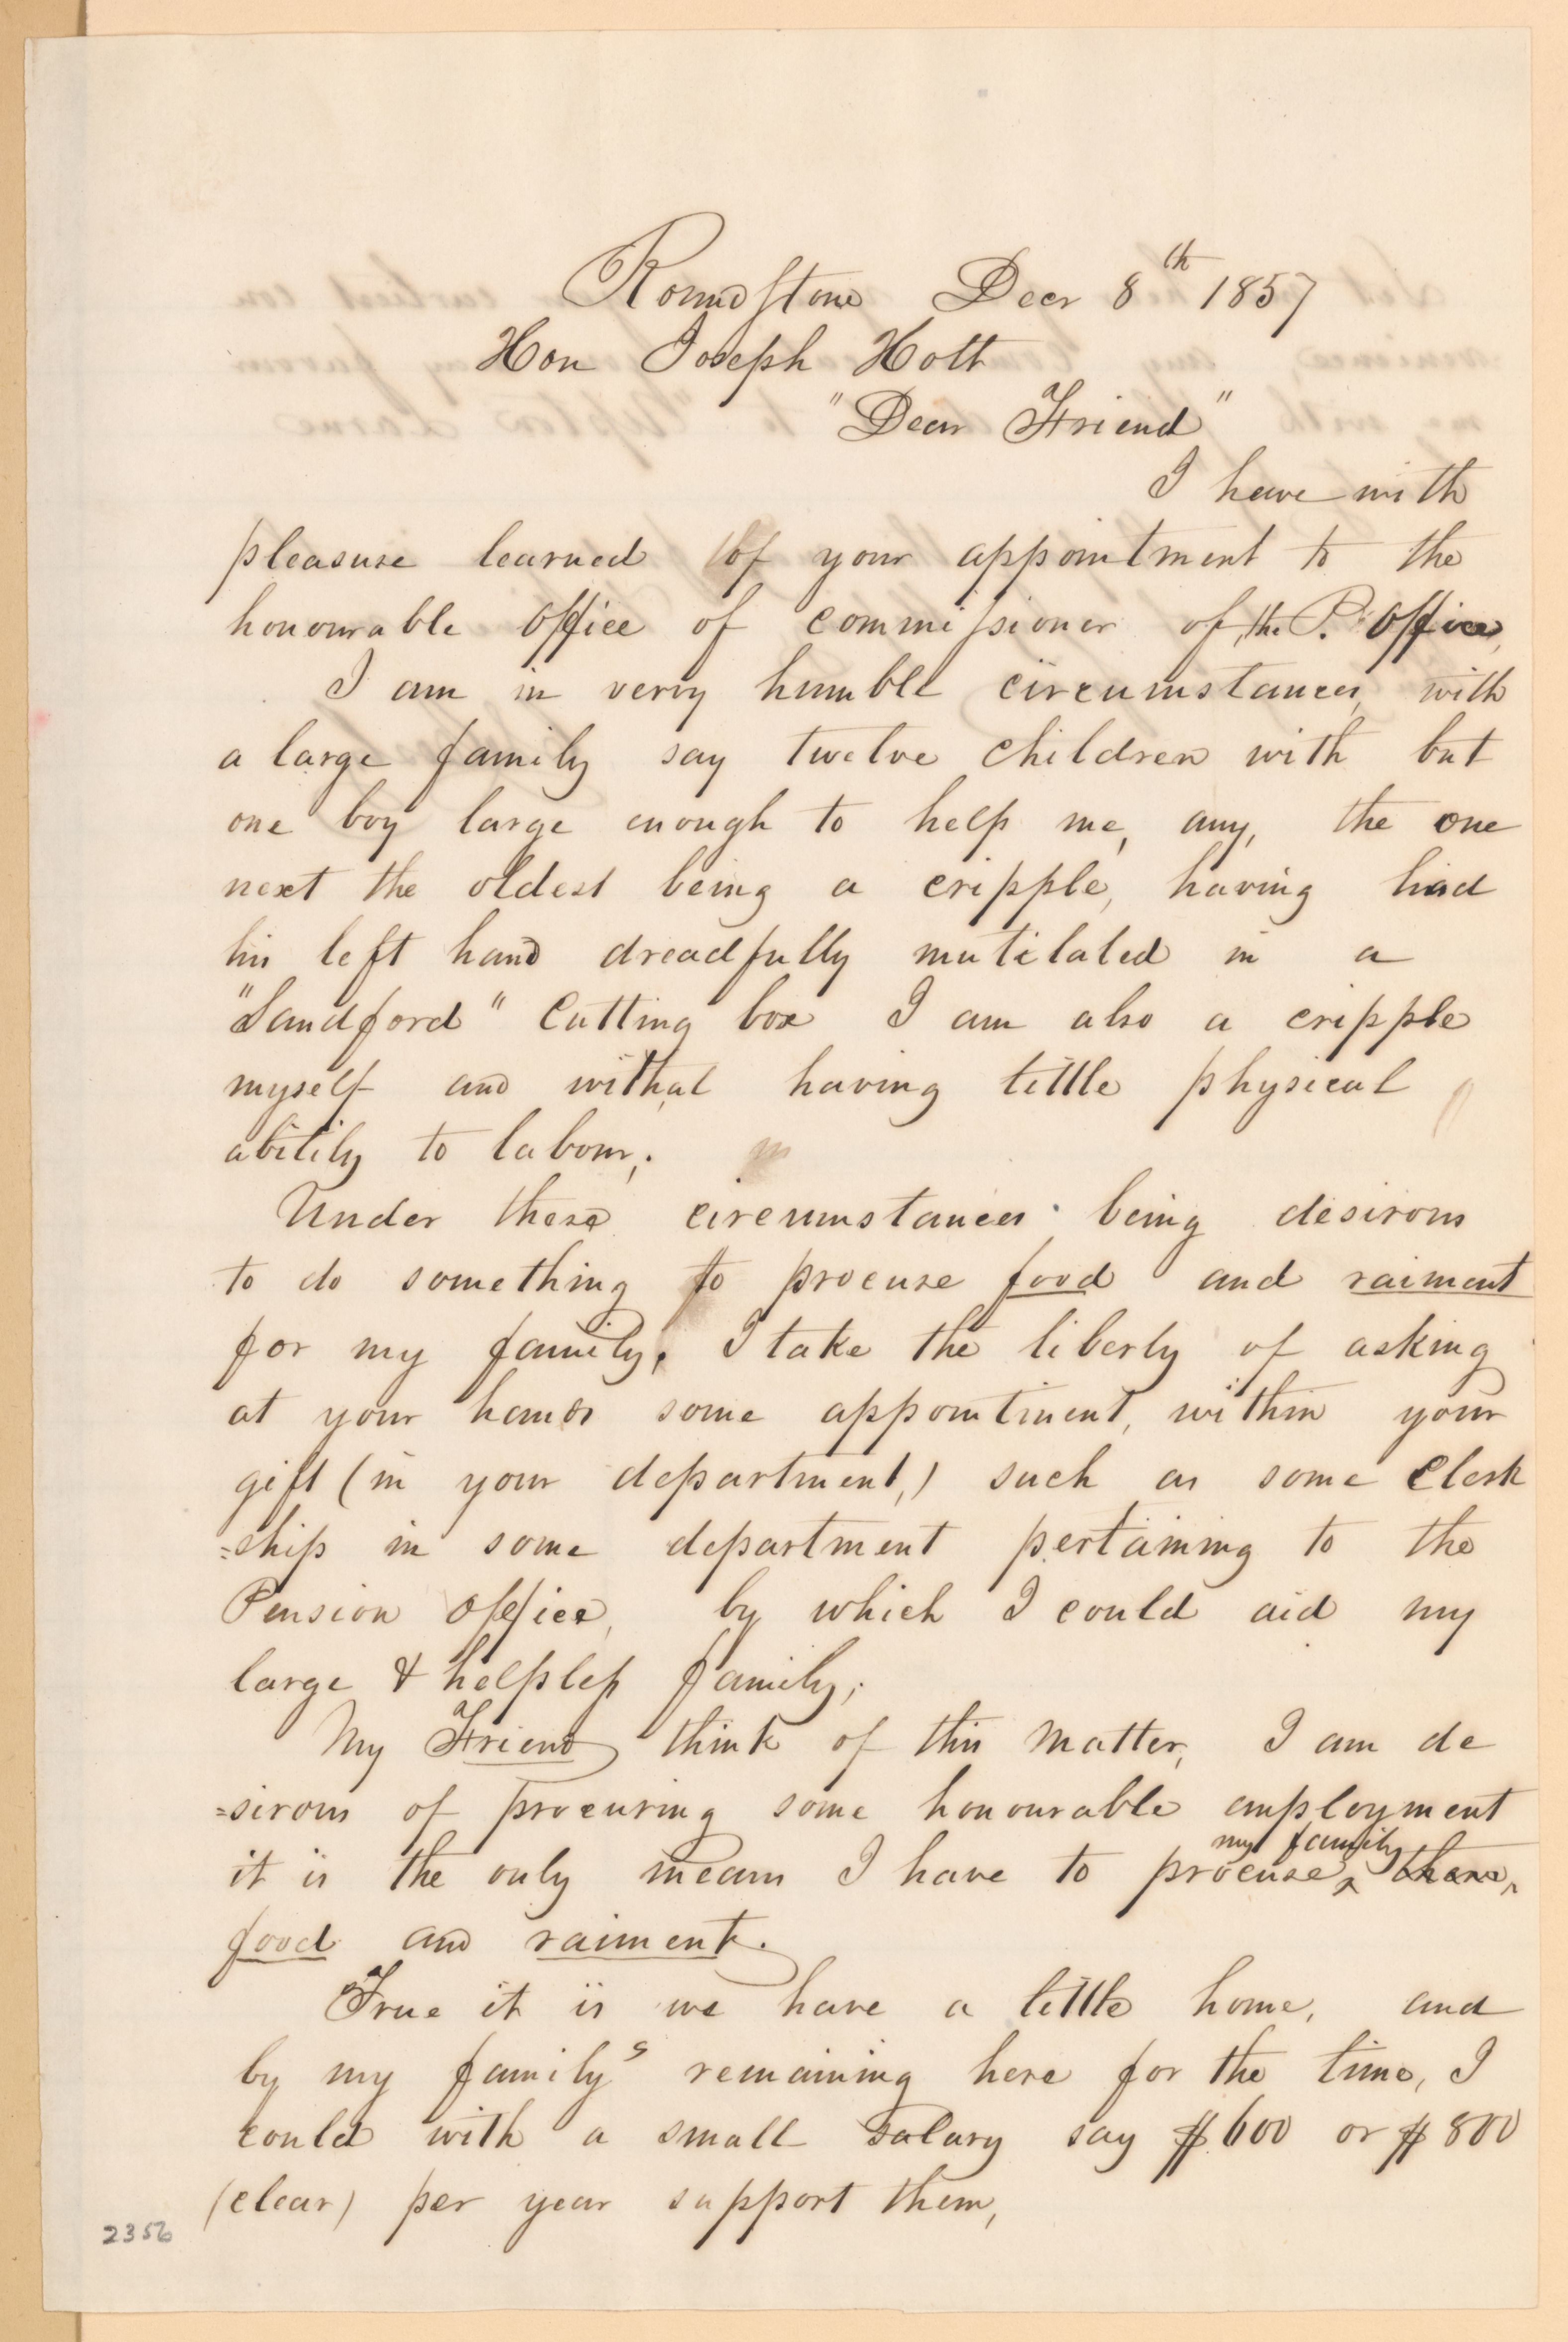 Roundstone Decr 8th 1857
Hon Joseph Holt
"Dear Friend"
I have with
pleasure learned of your appointment to the
honourable office of commissioner of the P. Office,
I am in verry humble circumstances, with
a large family say twelve children with but
one boy large enough to help me, any, the one
next the oldest being a cripple, having had
his left hand dreadfully mutilated in a
"Sandford" Cutting box I am also a cripple
myself and withal having little physical
ability to labour;.
Under these circumstances being desirous
to do something to procure food and raiment
for my family, I take the liberty of asking
at your hands some appointment, within your
gift (in your department,) such as some Clerk
=ship in some department pertaining to the
Pension office, by which I could aid my
large & helpless family;
My Friend think of this matter, I am de
=sirous of procuring some honourable employment
my family
it is the only means I have to procure ^ them,
food and raiment.
True it is we have a little home, and
by my family's remaining here for the time, I
could with a small salary say $600 or $800
(clear) per year support them,
2356